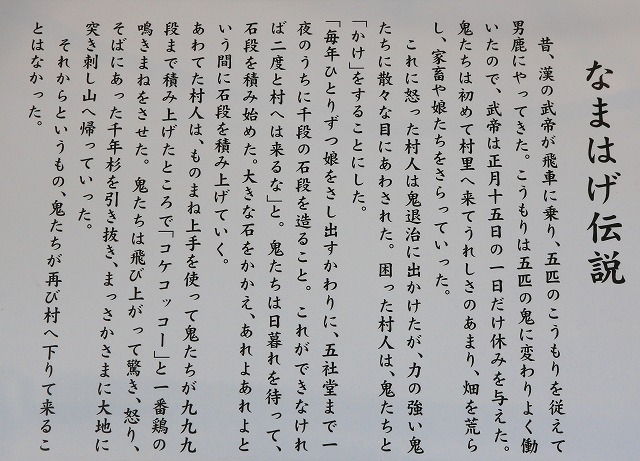 なまはげ伝説
昔、漢の武帝が飛車に乗り、五匹のこうもりを従えて
男鹿にやってきた。こうもりは五匹の鬼に変わりよく働
いたので、武帝は正月十五日の一日だけ休みを与えた。
鬼たちは初めて村里へ来てうれしさのあまり、畑を荒ら
し、家畜や娘たちをさらっていった。
これに怒った村人は鬼退治に出かけたが、力の強い鬼
たちに散々な目にあわされた。困った村人は、鬼たちと
「かけ」をすることにした。
「毎年ひとりずつ娘をさし出すかわりに、五社堂まで一
夜のうちに千段の石段を造ること。これができなけれ
ば二度と村へは来るな」と。鬼たちは日暮れを待って、
石段を積み始めた。大きな石をかかえ、あれよあれよと
いう間に石段を積み上げていく。
あわてた村人は、ものまね上手を使って鬼たちが九九九
段まで積み上げたところで「コケコッコー」と一番鶏の
鳴きまねをさせた。鬼たちは飛び上がって驚き、怒り、
そばにあった千年杉を引き抜き、まっさかさまに大地に
突き刺し山へ帰っていった。
それからというもの、鬼たちが再び村へ下りて来るこ
とはなかった。